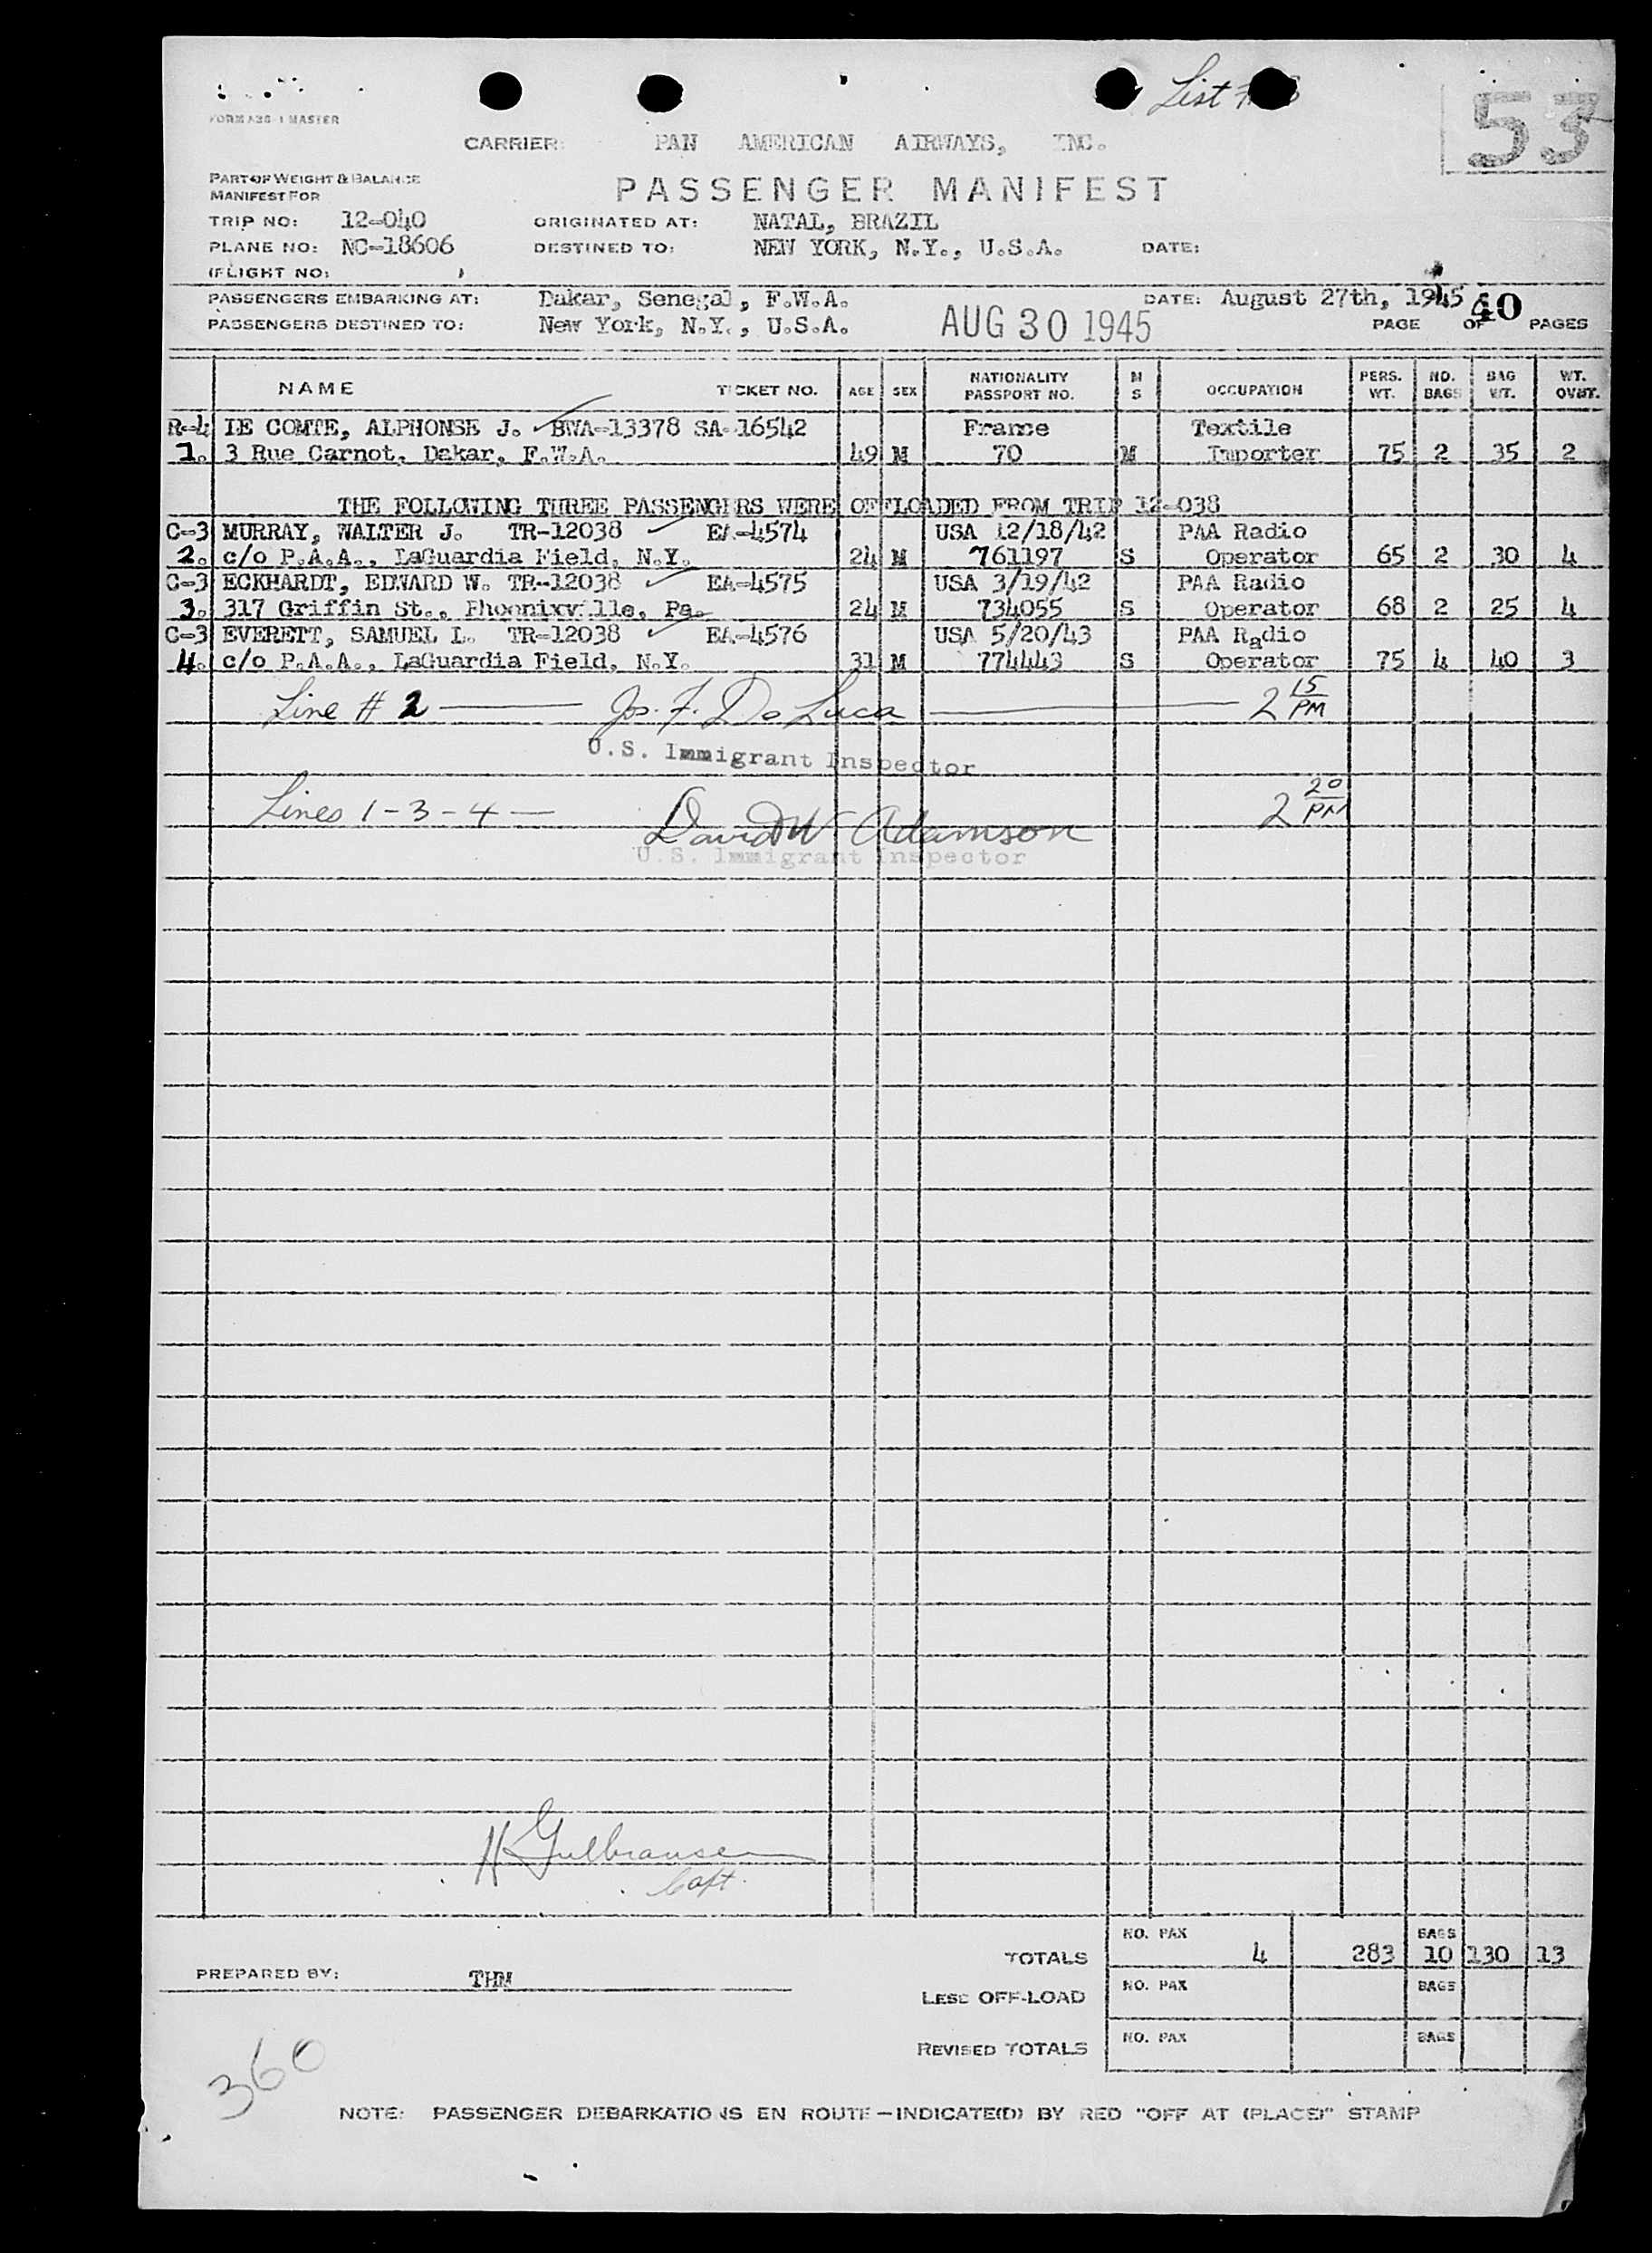 List
53
FORM A28-1 MASTER
CARRIER: PAN AMERICAN AIRWAYS, INC.
PART OF WEIGHT & BALANCE
MANIFEST FOR
PASSENGER MANIFEST
TRIP NO: 12-040 ORIGINATED AT: NATAL, BRAZIL
PLANE NO: NC-18606 DESTINED TO: NEW YORK, N.Y., U.S.A. DATE:
(FLIGHT NO: )
PASSENGERS EMBARKING AT: Dakar, Senegal, F.W.A. DATE: August 27th, 1945
PASSENGERS DESTINED TO: New York, N.Y., U.S.A. AUG 30 1945 PAGE OF 40 PAGES
NAME TICKET NO. AGE SEX NATIONALITY PASSPORT NO. M S OCCUPATION PERS. WT. NO. BAGS BAG WT. WT. OVWT.
R-4 LE COMTE, ALPHONSE J. BWA-13378 SA-16542 France Textile
1. 3 Rue Carnot, Dakar, F.W.A. 49 M 70 M Importer 75 2 35 2
THE FOLLOWING THREE PASSENGERS WERE OFFLOADED FROM TRIP 12-038
C-3 MURRAY, WALTER J. TR-12038 EA-4574 USA 12/18/42 PAA Radio
2. c/o P.A.A., LaGuardia Field, N.Y. 24 M 761197 S Operator 65 2 30 4
C-3 ECKHARDT, EDWARD W. TR-12038 EA-4575 USA 3/19/42 PAA Radio
3. 317 Griffin St., Phoenixville, Pa. 24 M 734055 S Operator 68 2 25 4
C-3 EVERETT, SAMUEL L. TR-12038 EA-4576 USA 5/20/43 PAA Radio
4. c/o P.A.A., LaGuardia Field, N.Y. 31 M 774443 S Operator 75 4 40 3
Line # 2 — Jos. F. De Luca — 2 15 PM
U.S. Immigrant Inspector
Lines 1-3-4 — David W Adamson 2 20 PM
U.S. Immigrant Inspector
H Gulbransen
Capt.
TOTALS NO. PAX 4 283 BAGS 10 130 13
PREPARED BY: THM
LESS OFF-LOAD NO. PAX BAGS
REVISED TOTALS NO. PAX BAGS
360
NOTE: PASSENGER DEBARKATIONS EN ROUTE—INDICATE(D) BY RED "OFF AT (PLACE)" STAMP